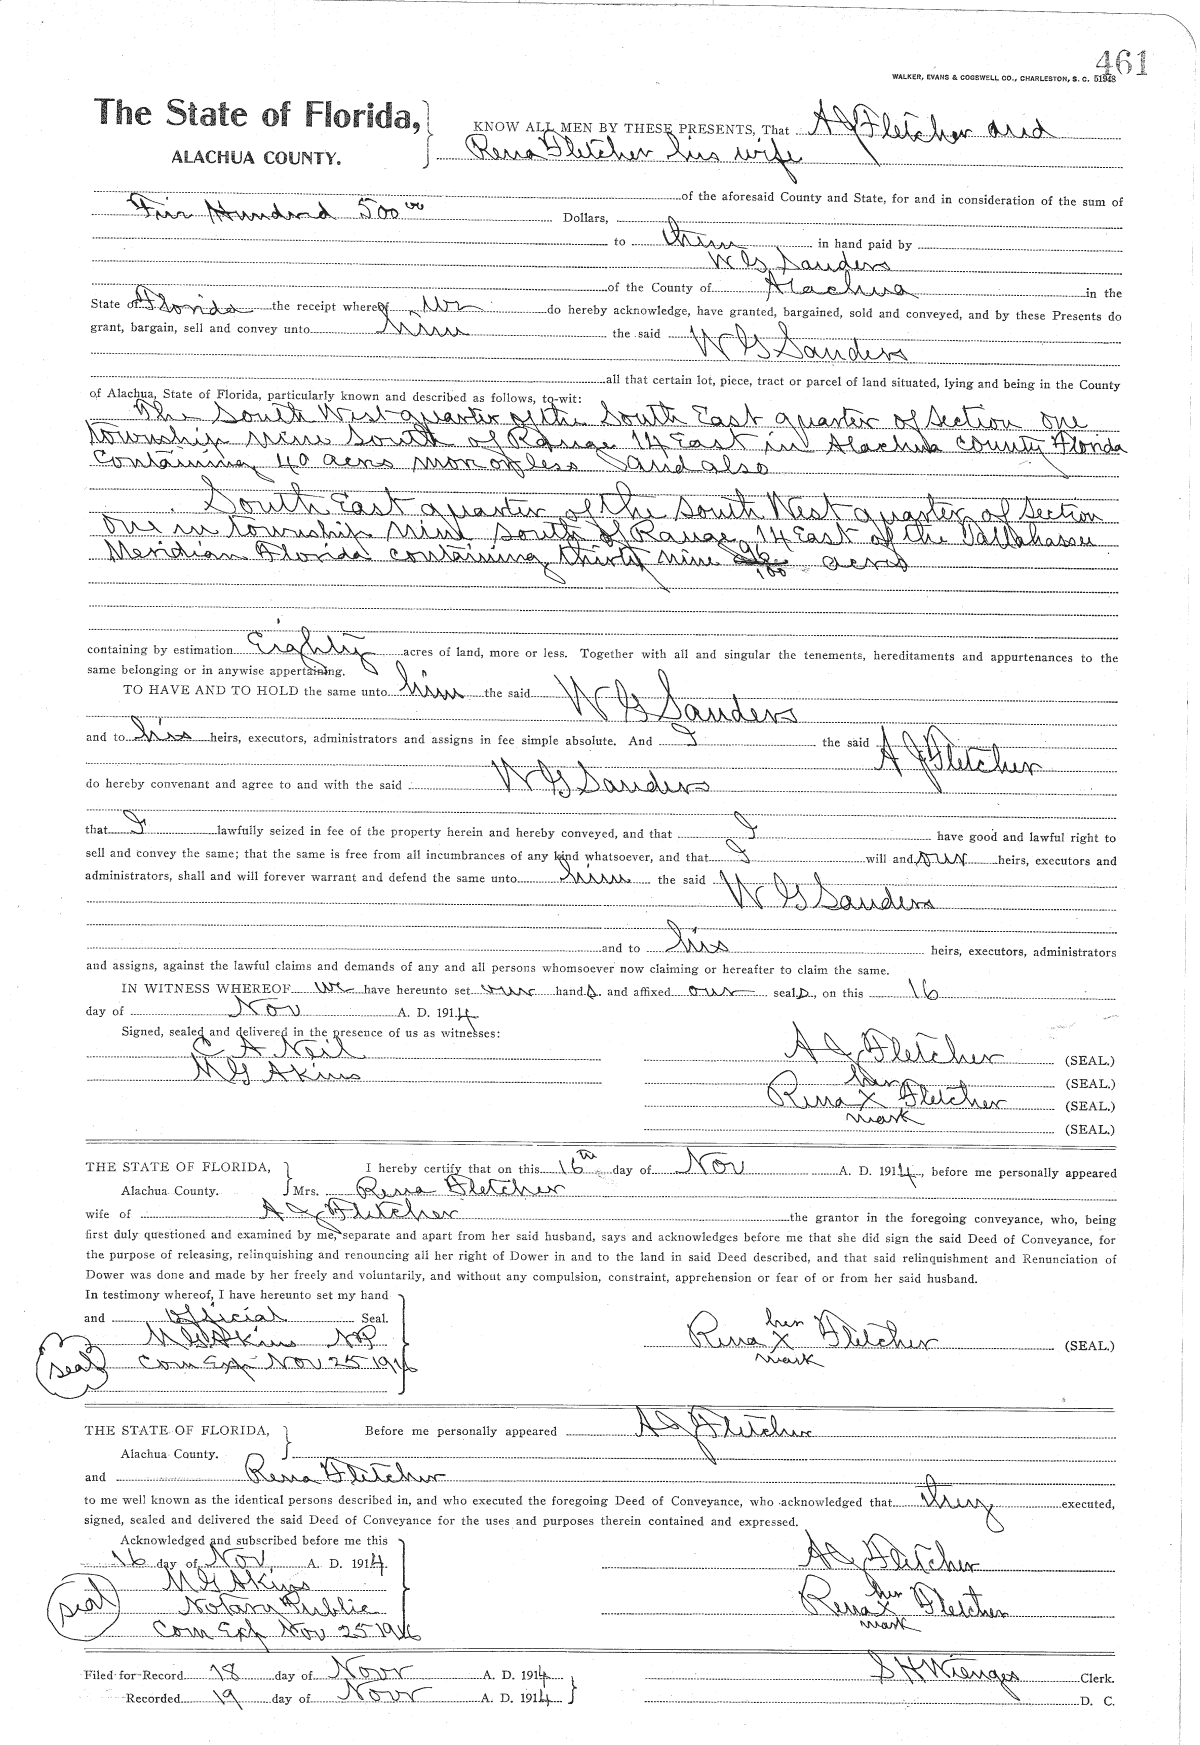 461
WALKER, EVANS & COGSWELL CO., CHARLESTON, S. C. 51948
The State of Florida,
ALACHUA COUNTY.
KNOW ALL MEN BY THESE PRESENTS, That A J Fletcher and
Rena Fletcher his wife
of the aforesaid County and State, for and in consideration of the sum of
Five Hundred 500 00 Dollars,
to them in hand paid by
W G Sanders
of the County of Alachua in the
State of Florida the receipt whereof we do hereby acknowledge, have granted, bargained, sold and conveyed, and by these Presents do
grant, bargain, sell and convey unto him the said W G Sanders
all that certain lot, piece, tract or parcel of land situated, lying and being in the County
of Alachua, State of Florida, particularly known and described as follows, to-wit:
The South West quarter of the South East quarter of Section one
township nine South of Range 14 East in Alachua County Florida
Containing 40 acres more or less and also
South East quarter of the South West quarter of Section
one in township nine south of Range 14 East of the Tallahassee
Meridian Florida containing thirty nine 96/100 acres
containing by estimation Eighty acres of land, more or less. Together with all and singular the tenements, hereditaments and appurtenances to the
same belonging or in anywise appertaining.
TO HAVE AND TO HOLD the same unto him the said W G Sanders
and to his heirs, executors, administrators and assigns in fee simple absolute. And I the said A J Fletcher
do hereby convenant and agree to and with the said W G Sanders
that I lawfully seized in fee of the property herein and hereby conveyed, and that I have good and lawful right to
sell and convey the same; that the same is free from all incumbrances of any kind whatsoever, and that I will and our heirs, executors and
administrators, shall and will forever warrant and defend the same unto him the said W G Sanders
and to his heirs, executors, administrators
and assigns, against the lawful claims and demands of any and all persons whomsoever now claiming or hereafter to claim the same.
IN WITNESS WHEREOF we have hereunto set our hand s and affixed our seal s, on this 16
day of Nov A. D. 1914
Signed, sealed and delivered in the presence of us as witnesses:
C A Neil
M G Akins
A J Fletcher (SEAL.)
her (SEAL.)
Rena X Fletcher (SEAL.)
mark (SEAL.)
THE STATE OF FLORIDA,
Alachua County.
I hereby certify that on this 16th day of Nov A. D. 1914, before me personally appeared
Mrs. Rena Fletcher
wife of A J Fletcher the grantor in the foregoing conveyance, who, being
first duly questioned and examined by me, separate and apart from her said husband, says and acknowledges before me that she did sign the said Deed of Conveyance, for
the purpose of releasing, relinquishing and renouncing all her right of Dower in and to the land in said Deed described, and that said relinquishment and Renunciation of
Dower was done and made by her freely and voluntarily, and without any compulsion, constraint, apprehension or fear of or from her said husband.
In testimony whereof, I have hereunto set my hand
and official Seal.
M G Akins NP
(seal) Com Exp Nov 25 1916
her
Rena X Fletcher (SEAL.)
mark
THE STATE OF FLORIDA,
Alachua County.
Before me personally appeared A J Fletcher
and Rena Fletcher
to me well known as the identical persons described in, and who executed the foregoing Deed of Conveyance, who acknowledged that they executed,
signed, sealed and delivered the said Deed of Conveyance for the uses and purposes therein contained and expressed.
Acknowledged and subscribed before me this
16 day of Nov A. D. 1914.
M G Akins
(seal) Notary Public
Com Exp Nov 25 1916
A J Fletcher
her
Rena X Fletcher
mark
Filed for Record 18 day of Novr A. D. 1914
Recorded 19 day of Novr A. D. 1914
S H Wienges Clerk.
D. C.